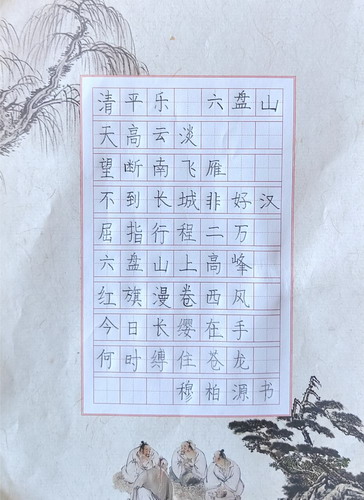 清平乐 六盘山
天高云淡
望断南飞雁
不到长城非好汉
屈指行程二万
六盘山上高峰
红旗漫卷西风
今日长缨在手
何时缚住苍龙
穆柏源书